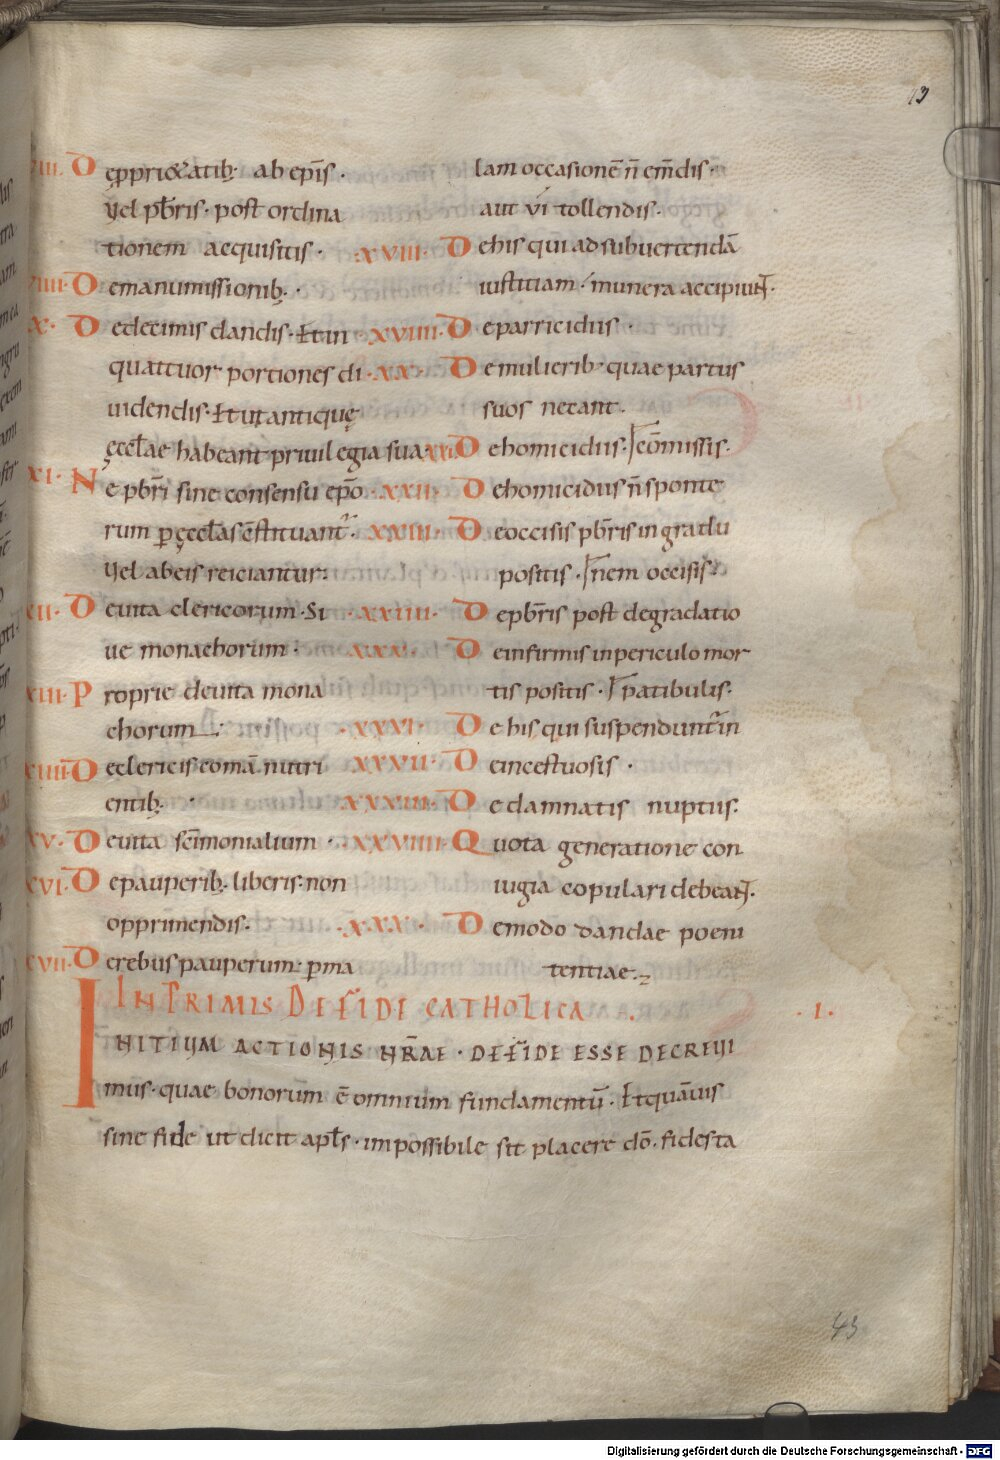 13
VIII. D ep̱pri&atib; ab ep̄is.
vel pb̄ris. post ordina
tionem aequisitis.
VIIII. D emanumissionib;.
X. D edecimis dandis. Et in
quattuor portiones di
uidendis. Et ut antiquę
ęccl̄ae habeant priuilegia sua.
XI. N e pb̄ri sine consensu ep̄o
rum p̱ ęccl̄as c̄stituant̄.
vel ab eis reiciantur.
XII. D euita clericorum. Si
ue monachorum.
XIII. P roprie deuita mona
chorum.
XIIII. D eclericis comā nutri
entib;.
XV. D euita sc̄imonialium.
XVI. D epauperib; liberis. non
opprimendis.
XVII. D erebus pauperum. p̱ma
lam occasionē n̄ em̄dis.
aut vi tollendis.
XVIII. D ehis qui ad subuertendā
iustitiam. munera accipiunt.
XVIIII. D eparricidiis.
XX. D emulierib; quae partus
suos necant.
XXI. D ehomicidiis. cōmissis.
XXII. D ehomicidiis n̄ sponte
XXIII. D eoccisis pb̄ris in gradu
positis. nem occisis.
XXIIII. D epb̄ris post degradatio
XXV. D einfirmis in periculo mor
tis positis. patibulis.
XXVI. D e his qui suspendunt̄ in
XXVII. D eincestuosis.
XXVIII. D e damnatis nuptiis.
XXVIIII. Q uota generatione con
iugia copulari debeant.
XXX. D emodo dandae poeni
tentiae.
IN PRIMIS DE FIDE CATHOLICA. .I.
INITIUM ACTIONIS NR̄AE. DE FIDE ESSE DECREUI
mus. quae bonorum ē omnium fundamentū. Et quāuis
sine fide ut dicit apl̄s. impossibile sit placere dō. fides ta
43
Digitalisierung gefördert durch die Deutsche Forschungsgemeinschaft - DFG